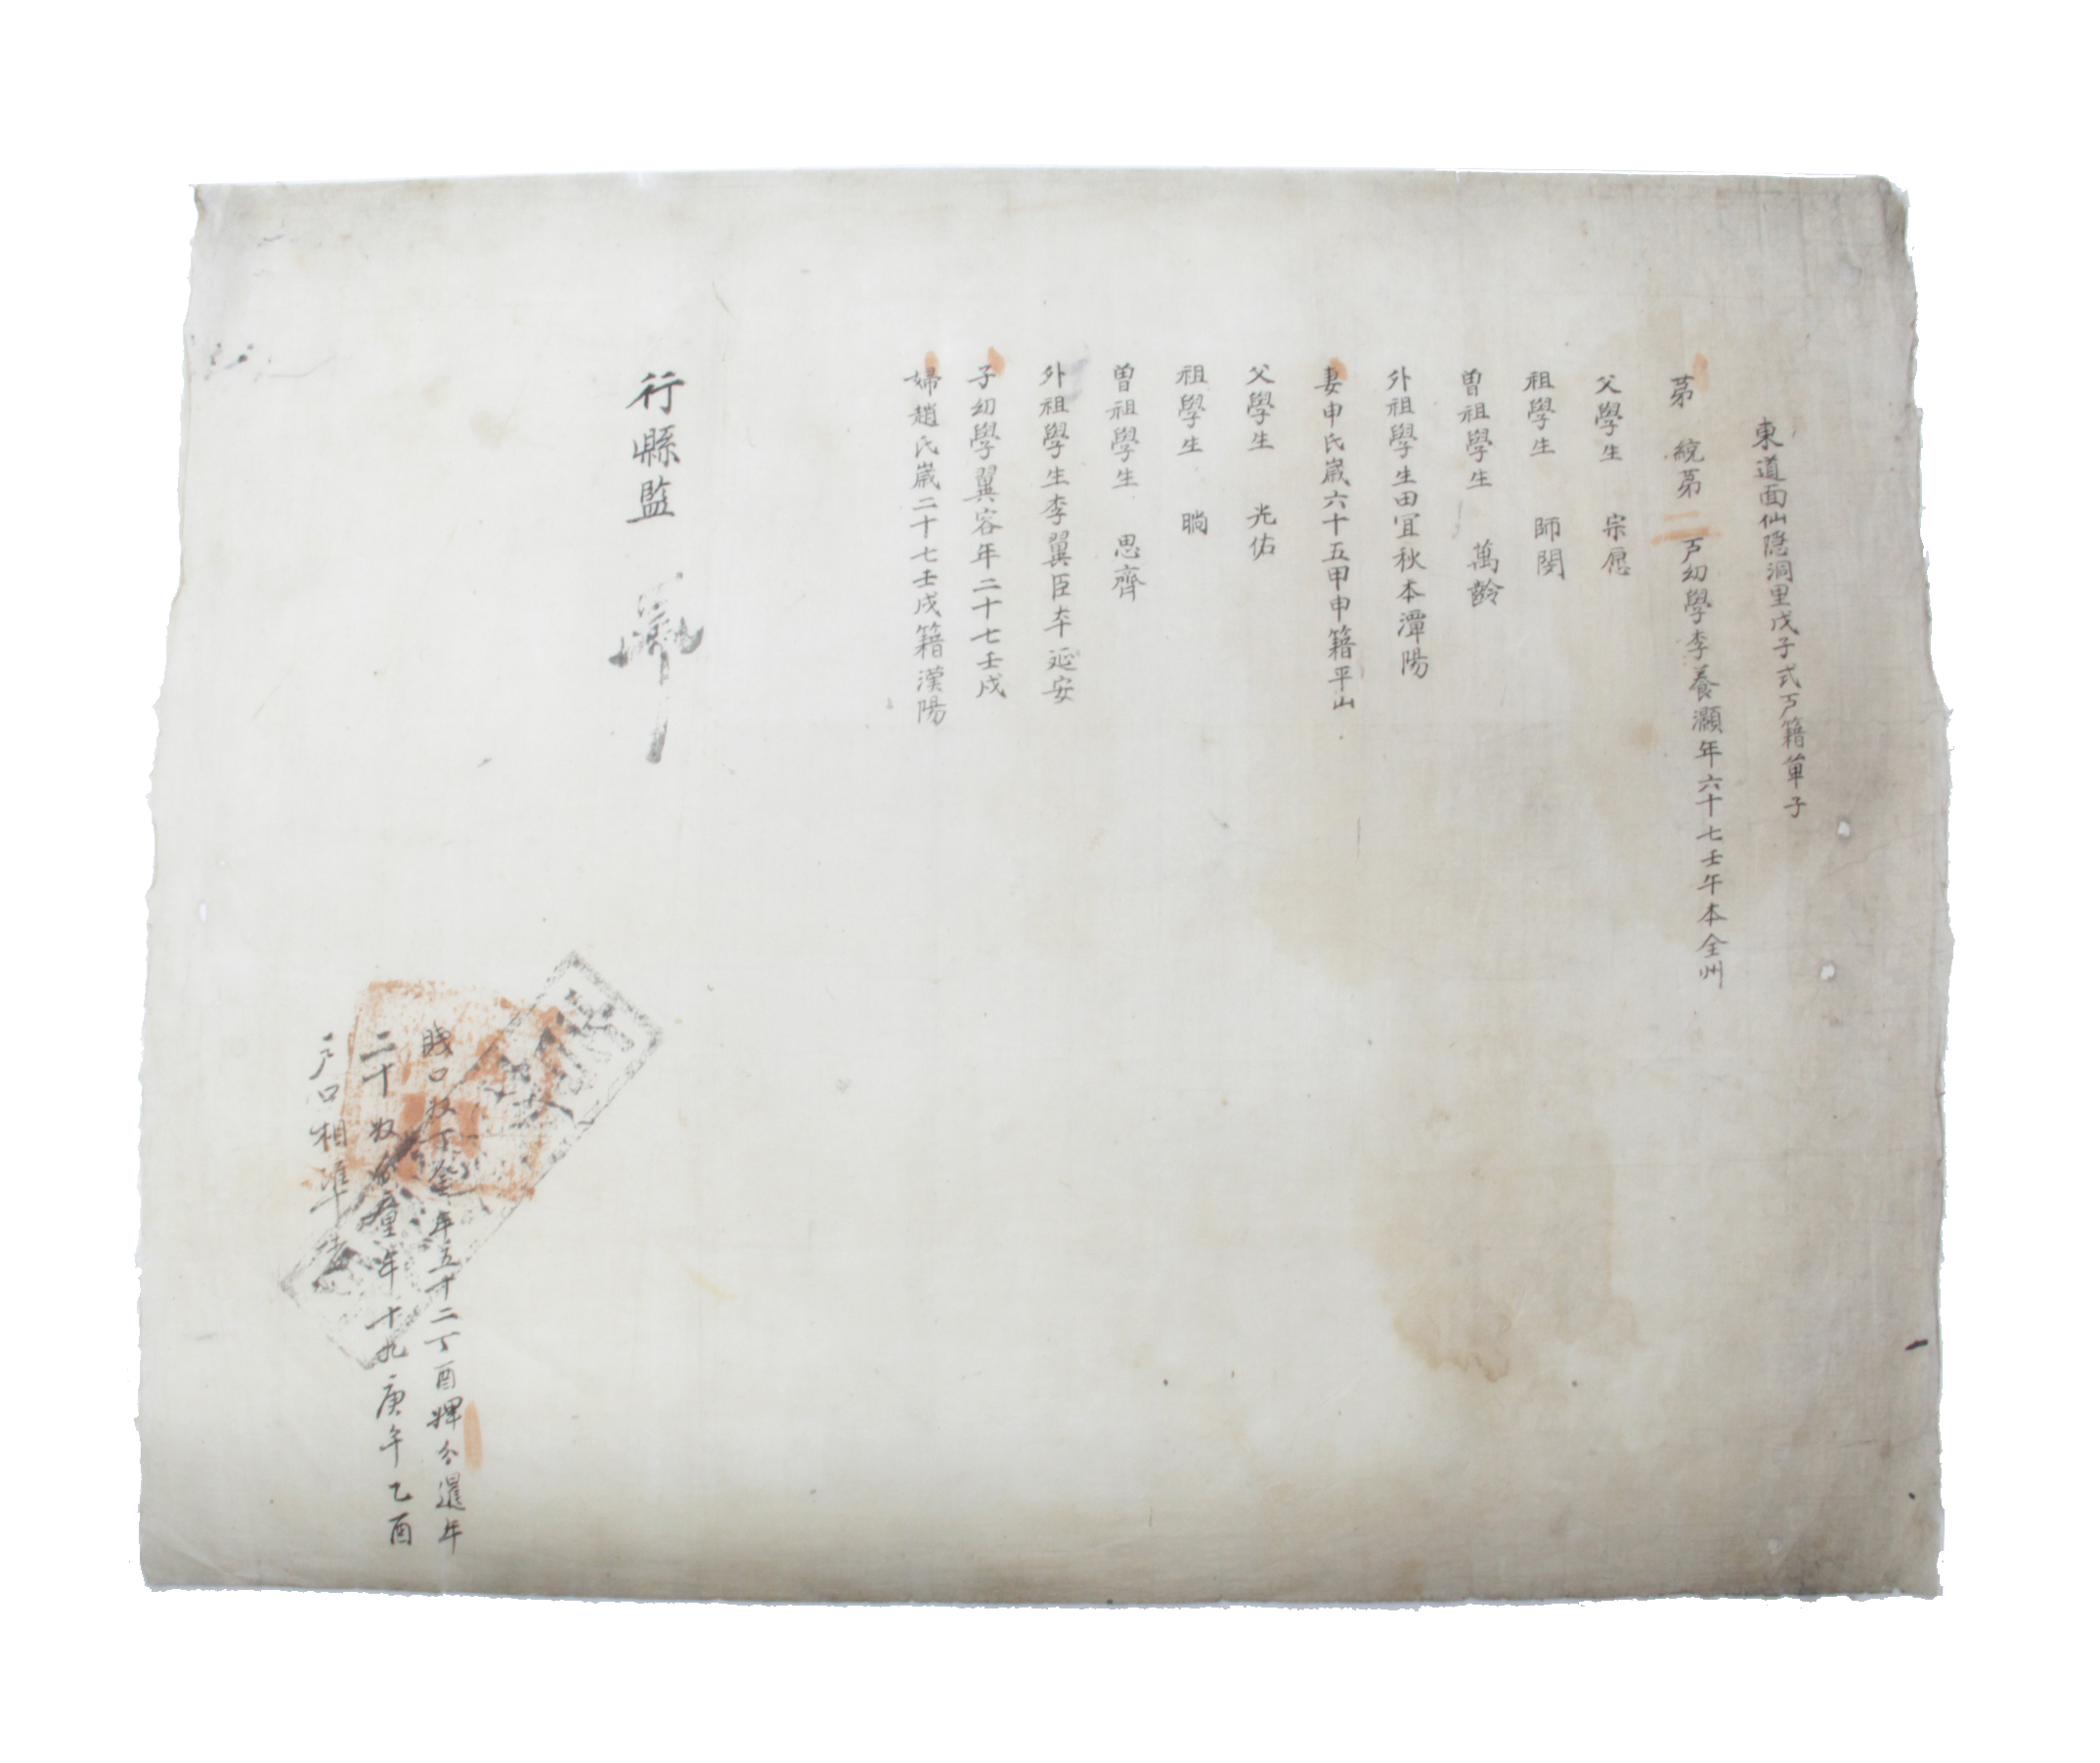 東道面仙隱洞里戊子式戶籍單子
第 統第二戶幼學李養灝年六十七壬午本全州
父學生 宗愿
祖學生 師閔
曾祖學生 萬齡
外祖學生田宜秋本潭陽
妻申氏歲六十五甲申籍平山
父學生 光佑
祖學生
曾祖學生 思齊
外祖學生李翼臣本延安
子幼學翼容年二十七壬戌
婦趙氏歲二十七壬戌籍漢陽
行縣監
賤口奴丁金年五十二丁酉婢今暹年
二十奴 童年十九庚午乙酉
戶口相準